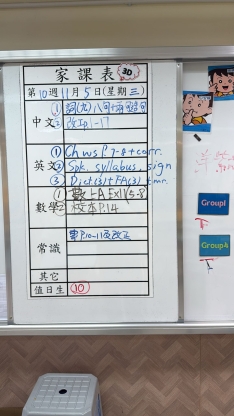 家課表 30
第10週11月5日(星期三)
中文 ① 詞(九)八句十兩句
② 改工p.1-17
英文 ① Ch ws P.7-8 + corr.
② Spk. syllabus, sign
③ Dict(3)+FA(3) tmr.
數學 ① 數上A Ex11(5-8)
② 校本P.14
常識 專P.10-11及改正
其它
值日生 ⑩
Group1
Group4